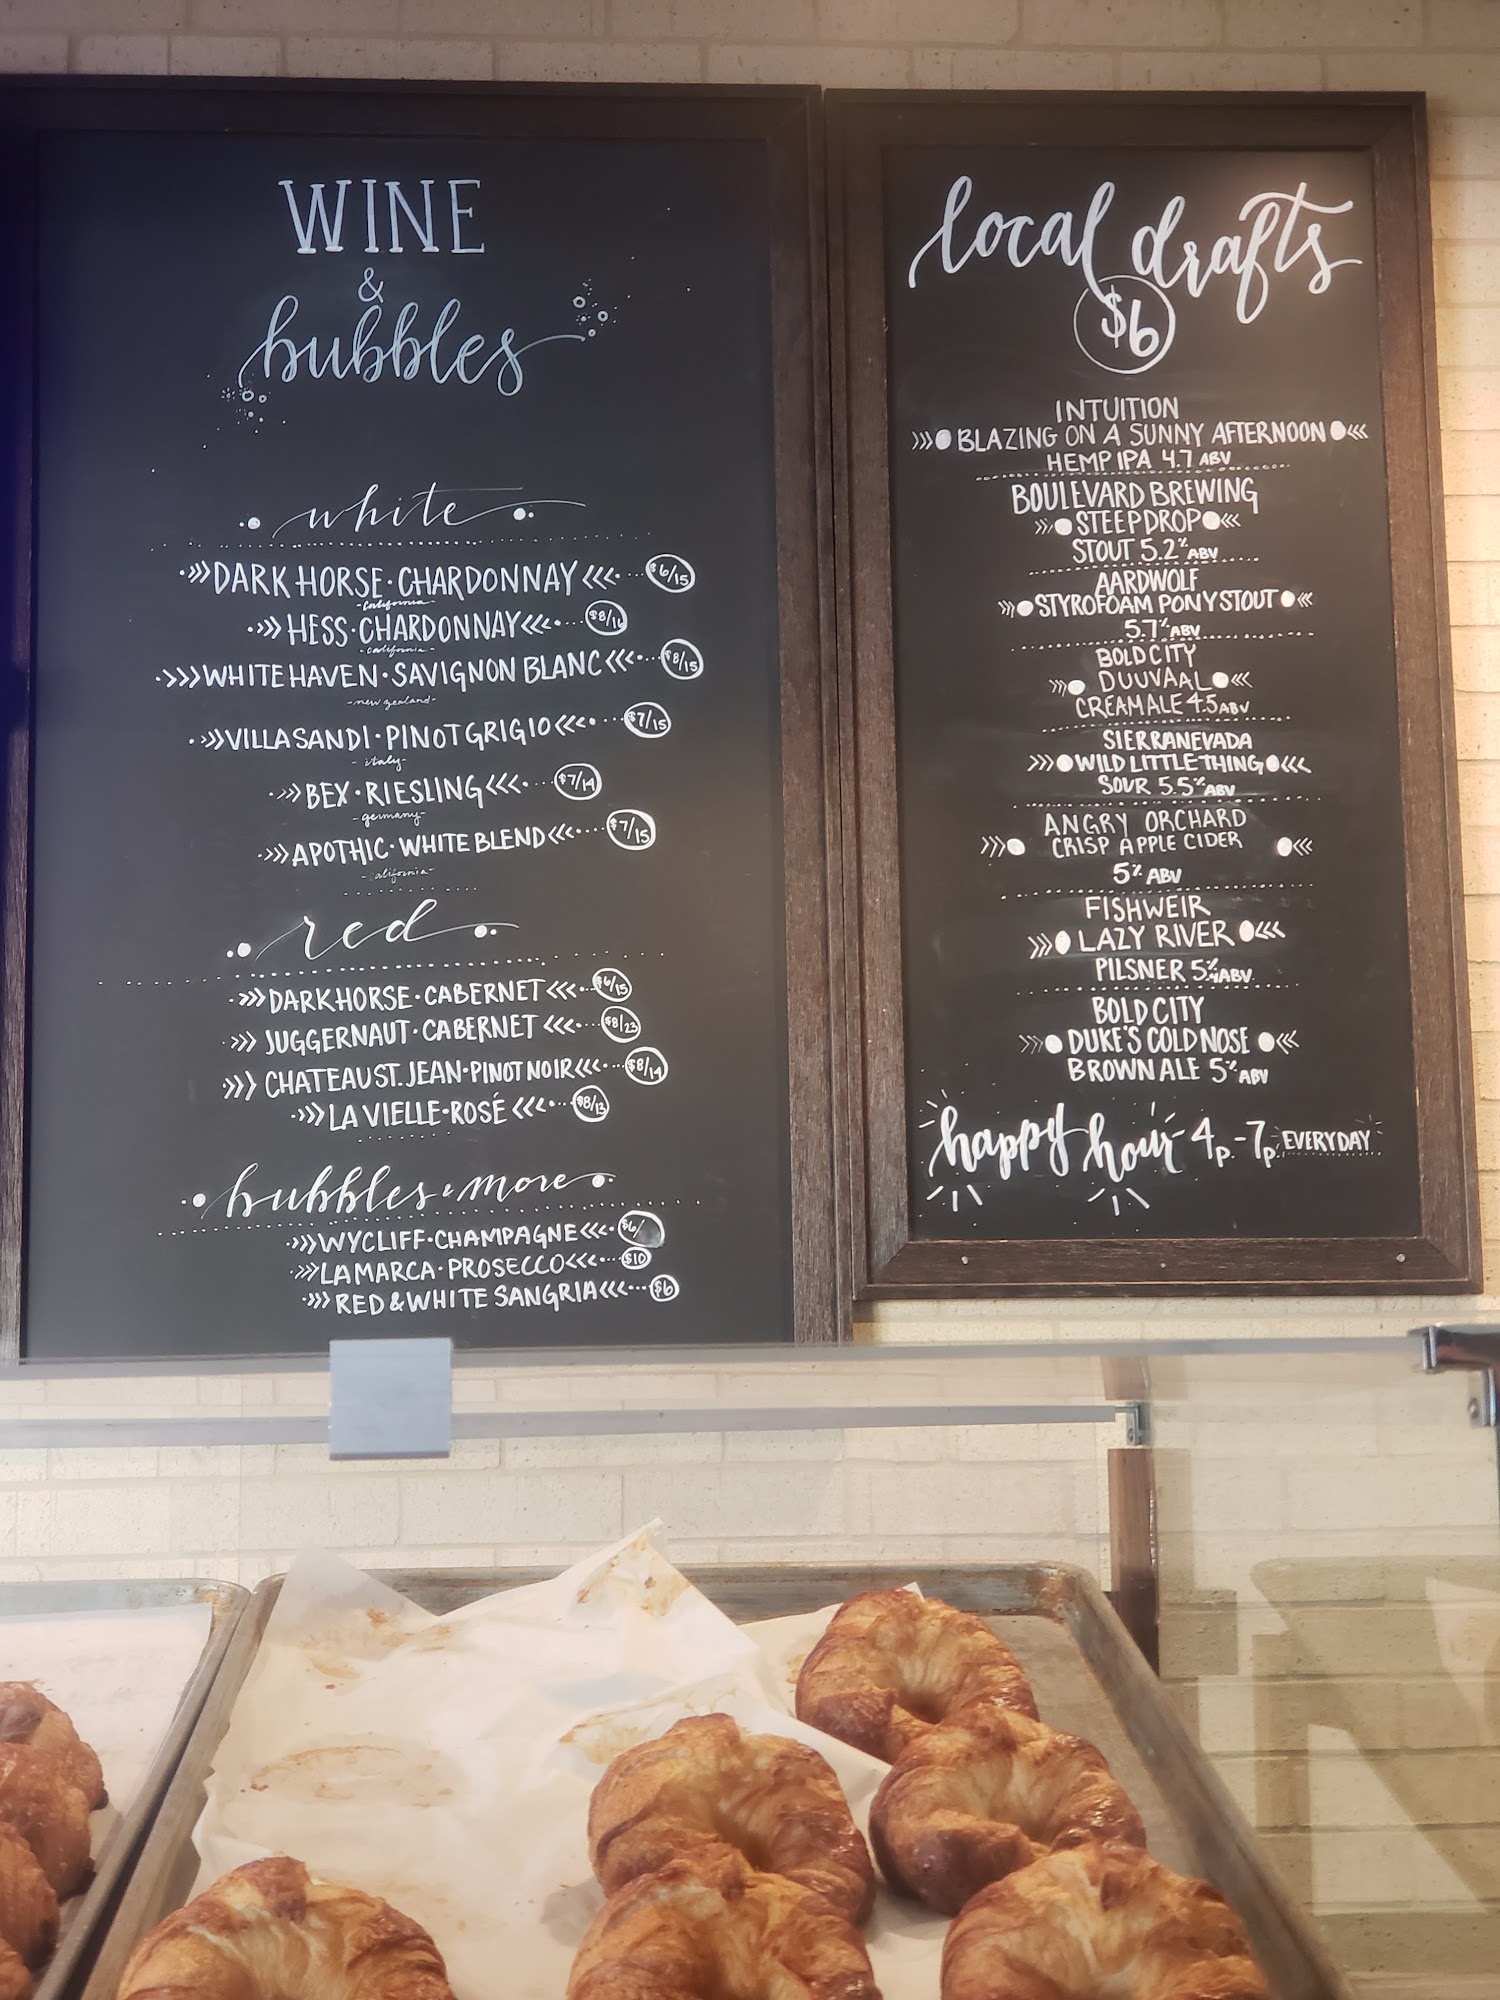 WINE
&
bubbles
white
DARK HORSE · CHARDONNAY $6/15
-california-
HESS · CHARDONNAY $8/16
-california-
WHITEHAVEN · SAVIGNON BLANC $8/15
-new zealand-
VILLA SANDI · PINOT GRIGIO $7/15
-italy-
BEX · RIESLING $7/14
-germany-
APOTHIC · WHITE BLEND $7/15
-california-
red
DARKHORSE · CABERNET $6/15
JUGGERNAUT · CABERNET $8/23
CHATEAU ST. JEAN · PINOT NOIR $8/14
LA VIELLE · ROSÉ $8/13
bubbles & more
WYCLIFF · CHAMPAGNE $6/
LAMARCA · PROSECCO $10
RED & WHITE SANGRIA $6
local drafts
$6
INTUITION
BLAZING ON A SUNNY AFTERNOON
HEMP IPA 4.7 ABV
BOULEVARD BREWING
STEEP DROP
STOUT 5.2% ABV
AARDWOLF
STYROFOAM PONY STOUT
5.7% ABV
BOLD CITY
DUUVAAL
CREAM ALE 4.5 ABV
SIERRA NEVADA
WILD LITTLE THING
SOUR 5.5% ABV
ANGRY ORCHARD
CRISP APPLE CIDER
5% ABV
FISHWEIR
LAZY RIVER
PILSNER 5% ABV
BOLD CITY
DUKE'S COLD NOSE
BROWN ALE 5% ABV
happy hour 4p-7p EVERYDAY